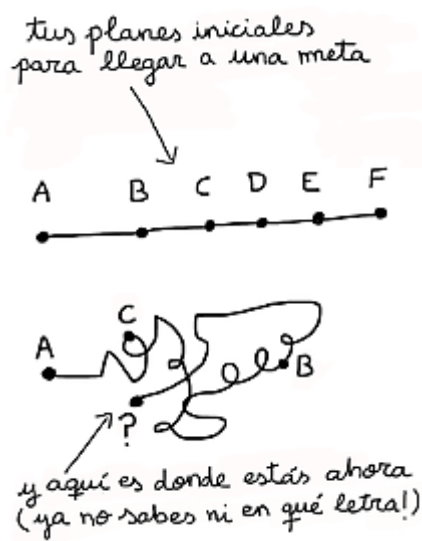 tus planes iniciales
para llegar a una meta
A B C D E F
C
A
B
?
y aquí es donde estás ahora
(ya no sabes ni en qué letra!)